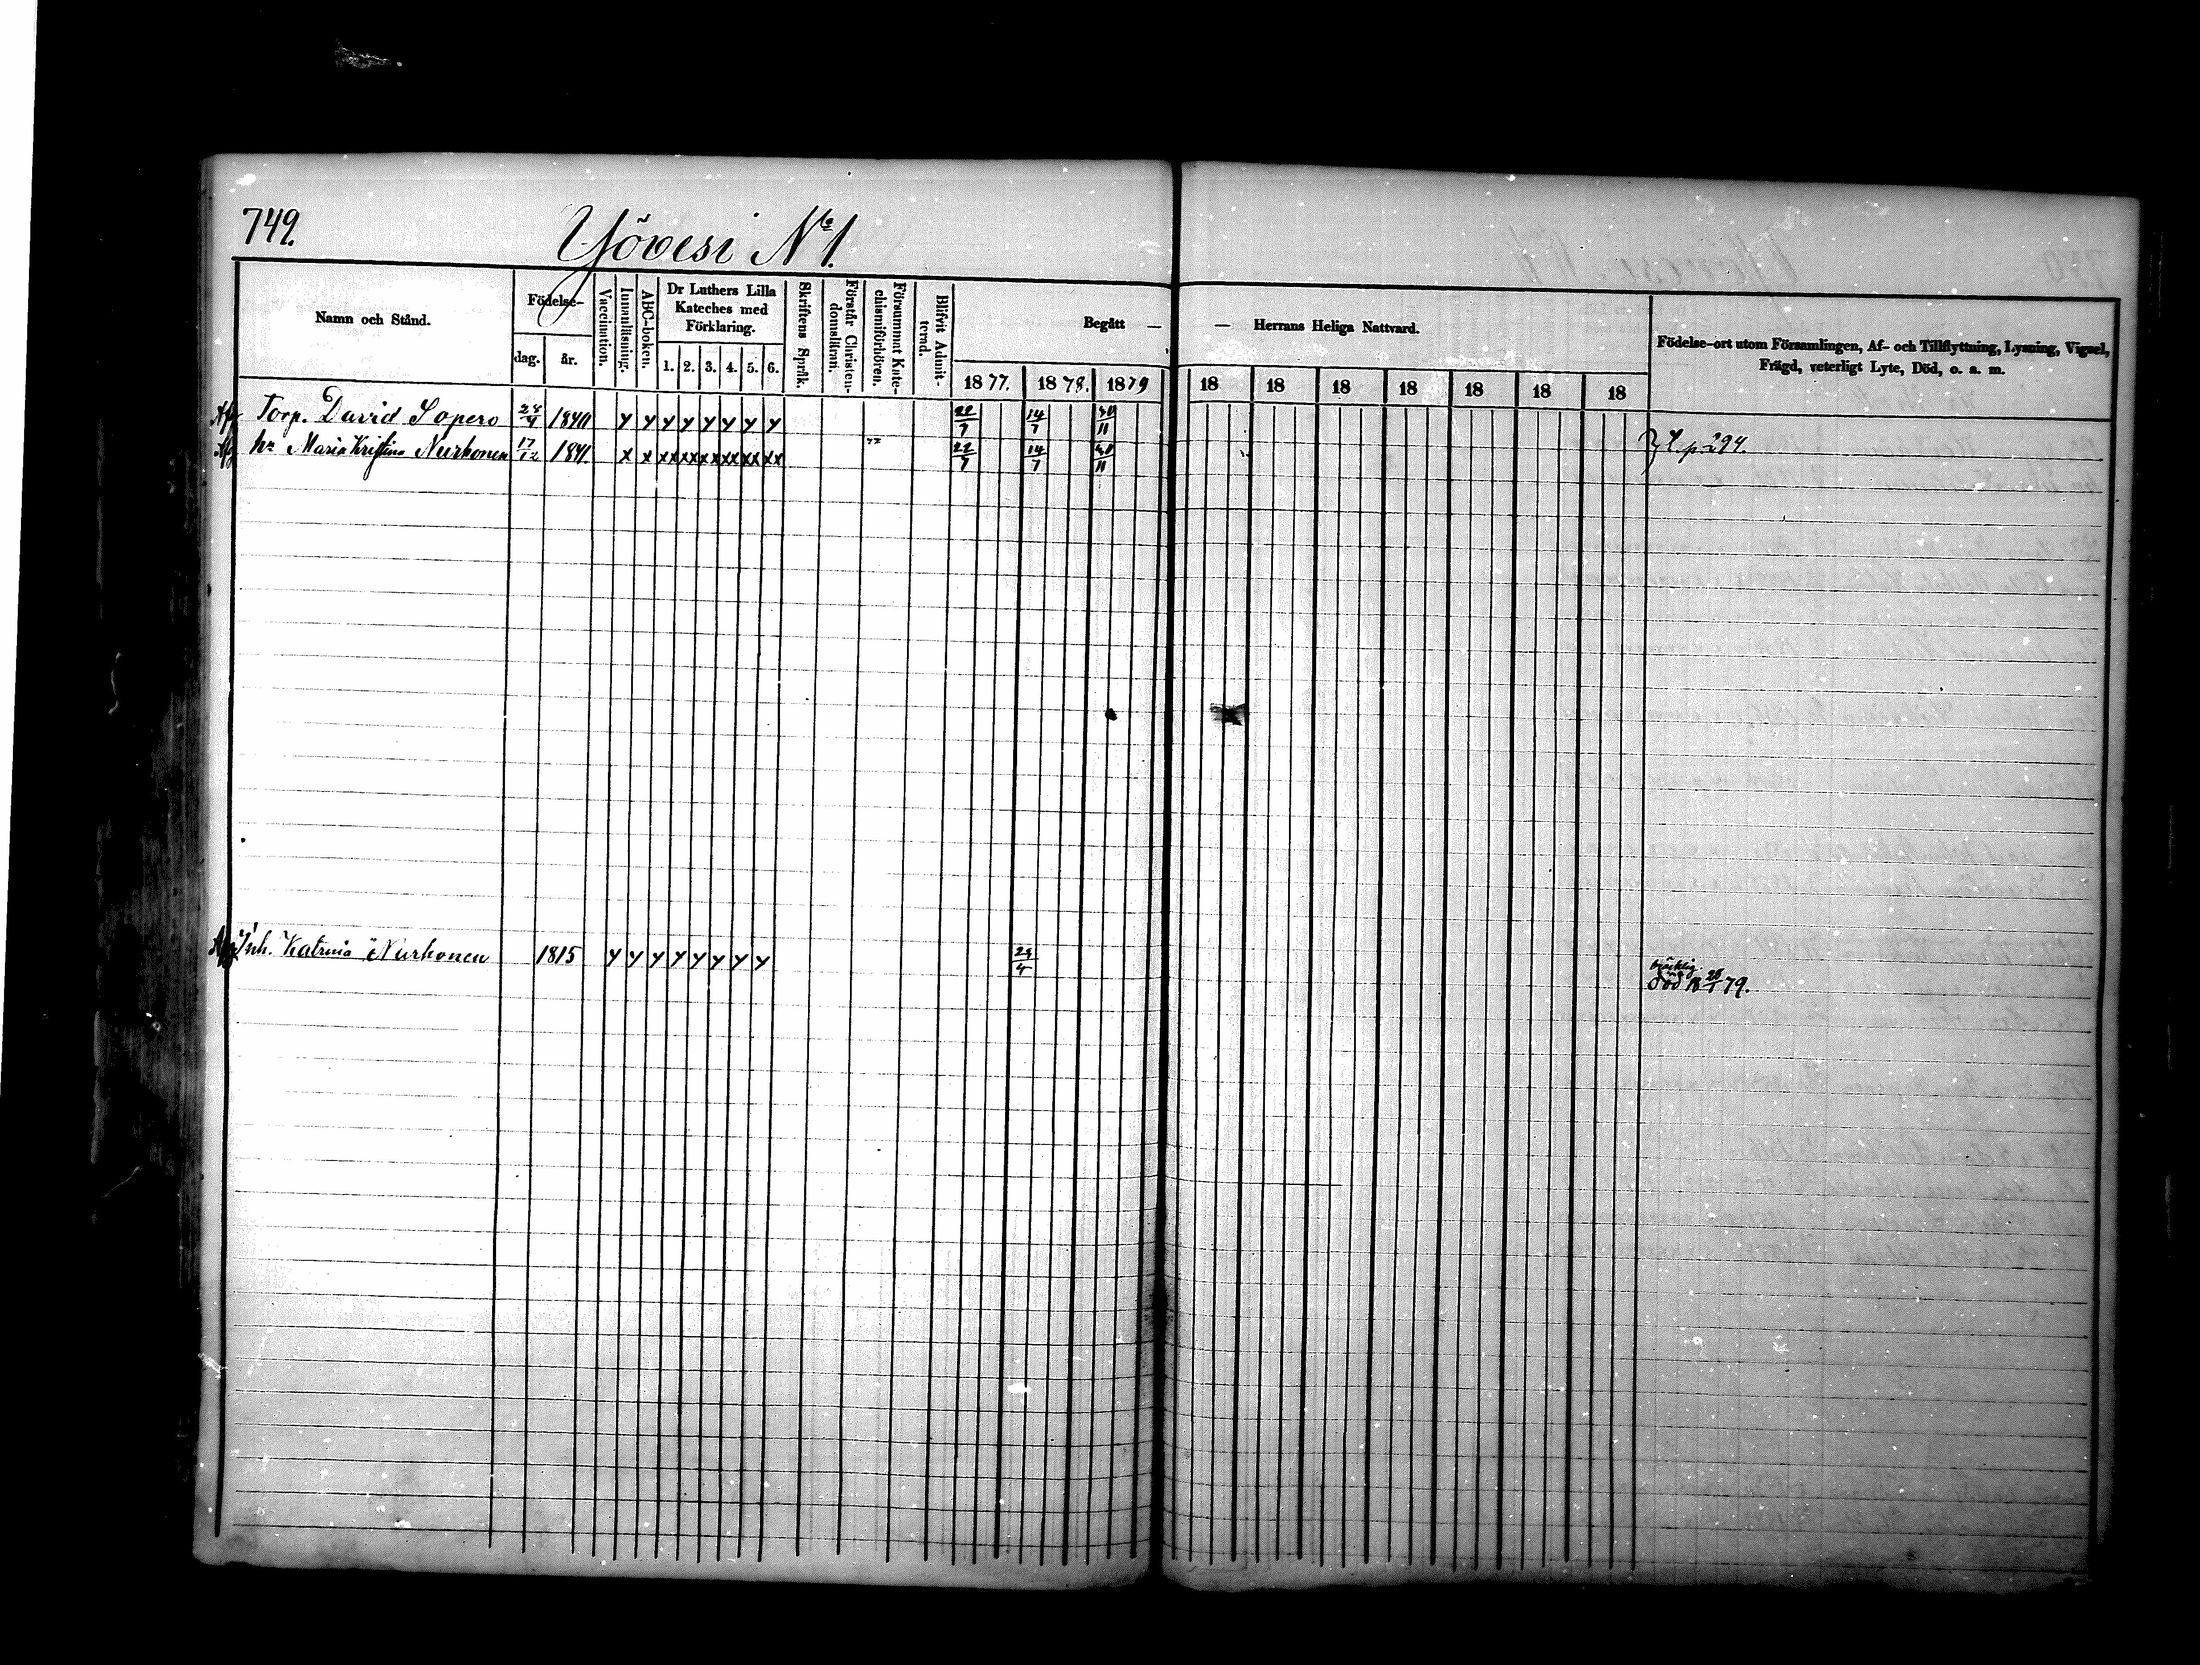 749.
Yövesi No 1.
Namn och Stånd.
Födelse-
dag.
år.
Vaccination.
Innanläsning.
ABC-boken.
Dr Luthers Lilla
Kateches med
Förklaring.
1. 2. 3. 4. 5. 6.
Skriftens Språk.
Förstår Christen-
domsläran.
Försummat Kate-
chismiförhören.
Blifvit Admit-
terad.
Begått — — Herrans Heliga Nattvard.
1877. 1878. 1879 18 18 18 18 18 18 18
Födelse-ort utom Församlingen, Af- och Tillflyttning, Lysning, Vigsel,
Frägd, veterligt Lyte, Död, o. a. m.
Torp. David Sopero 24/4 1840 y y y y y y y y 22/7 14/7 30/11
hu Maria Kristina Nurhonen 17/12 1841. x x xx xx xx xx xx xx 22/7 14/7 30/11 p. 294.
Inh. Katrina Nurhonen 1815 y y y y y y y y 29/4
bräcklig.
död 18 28/1 79.